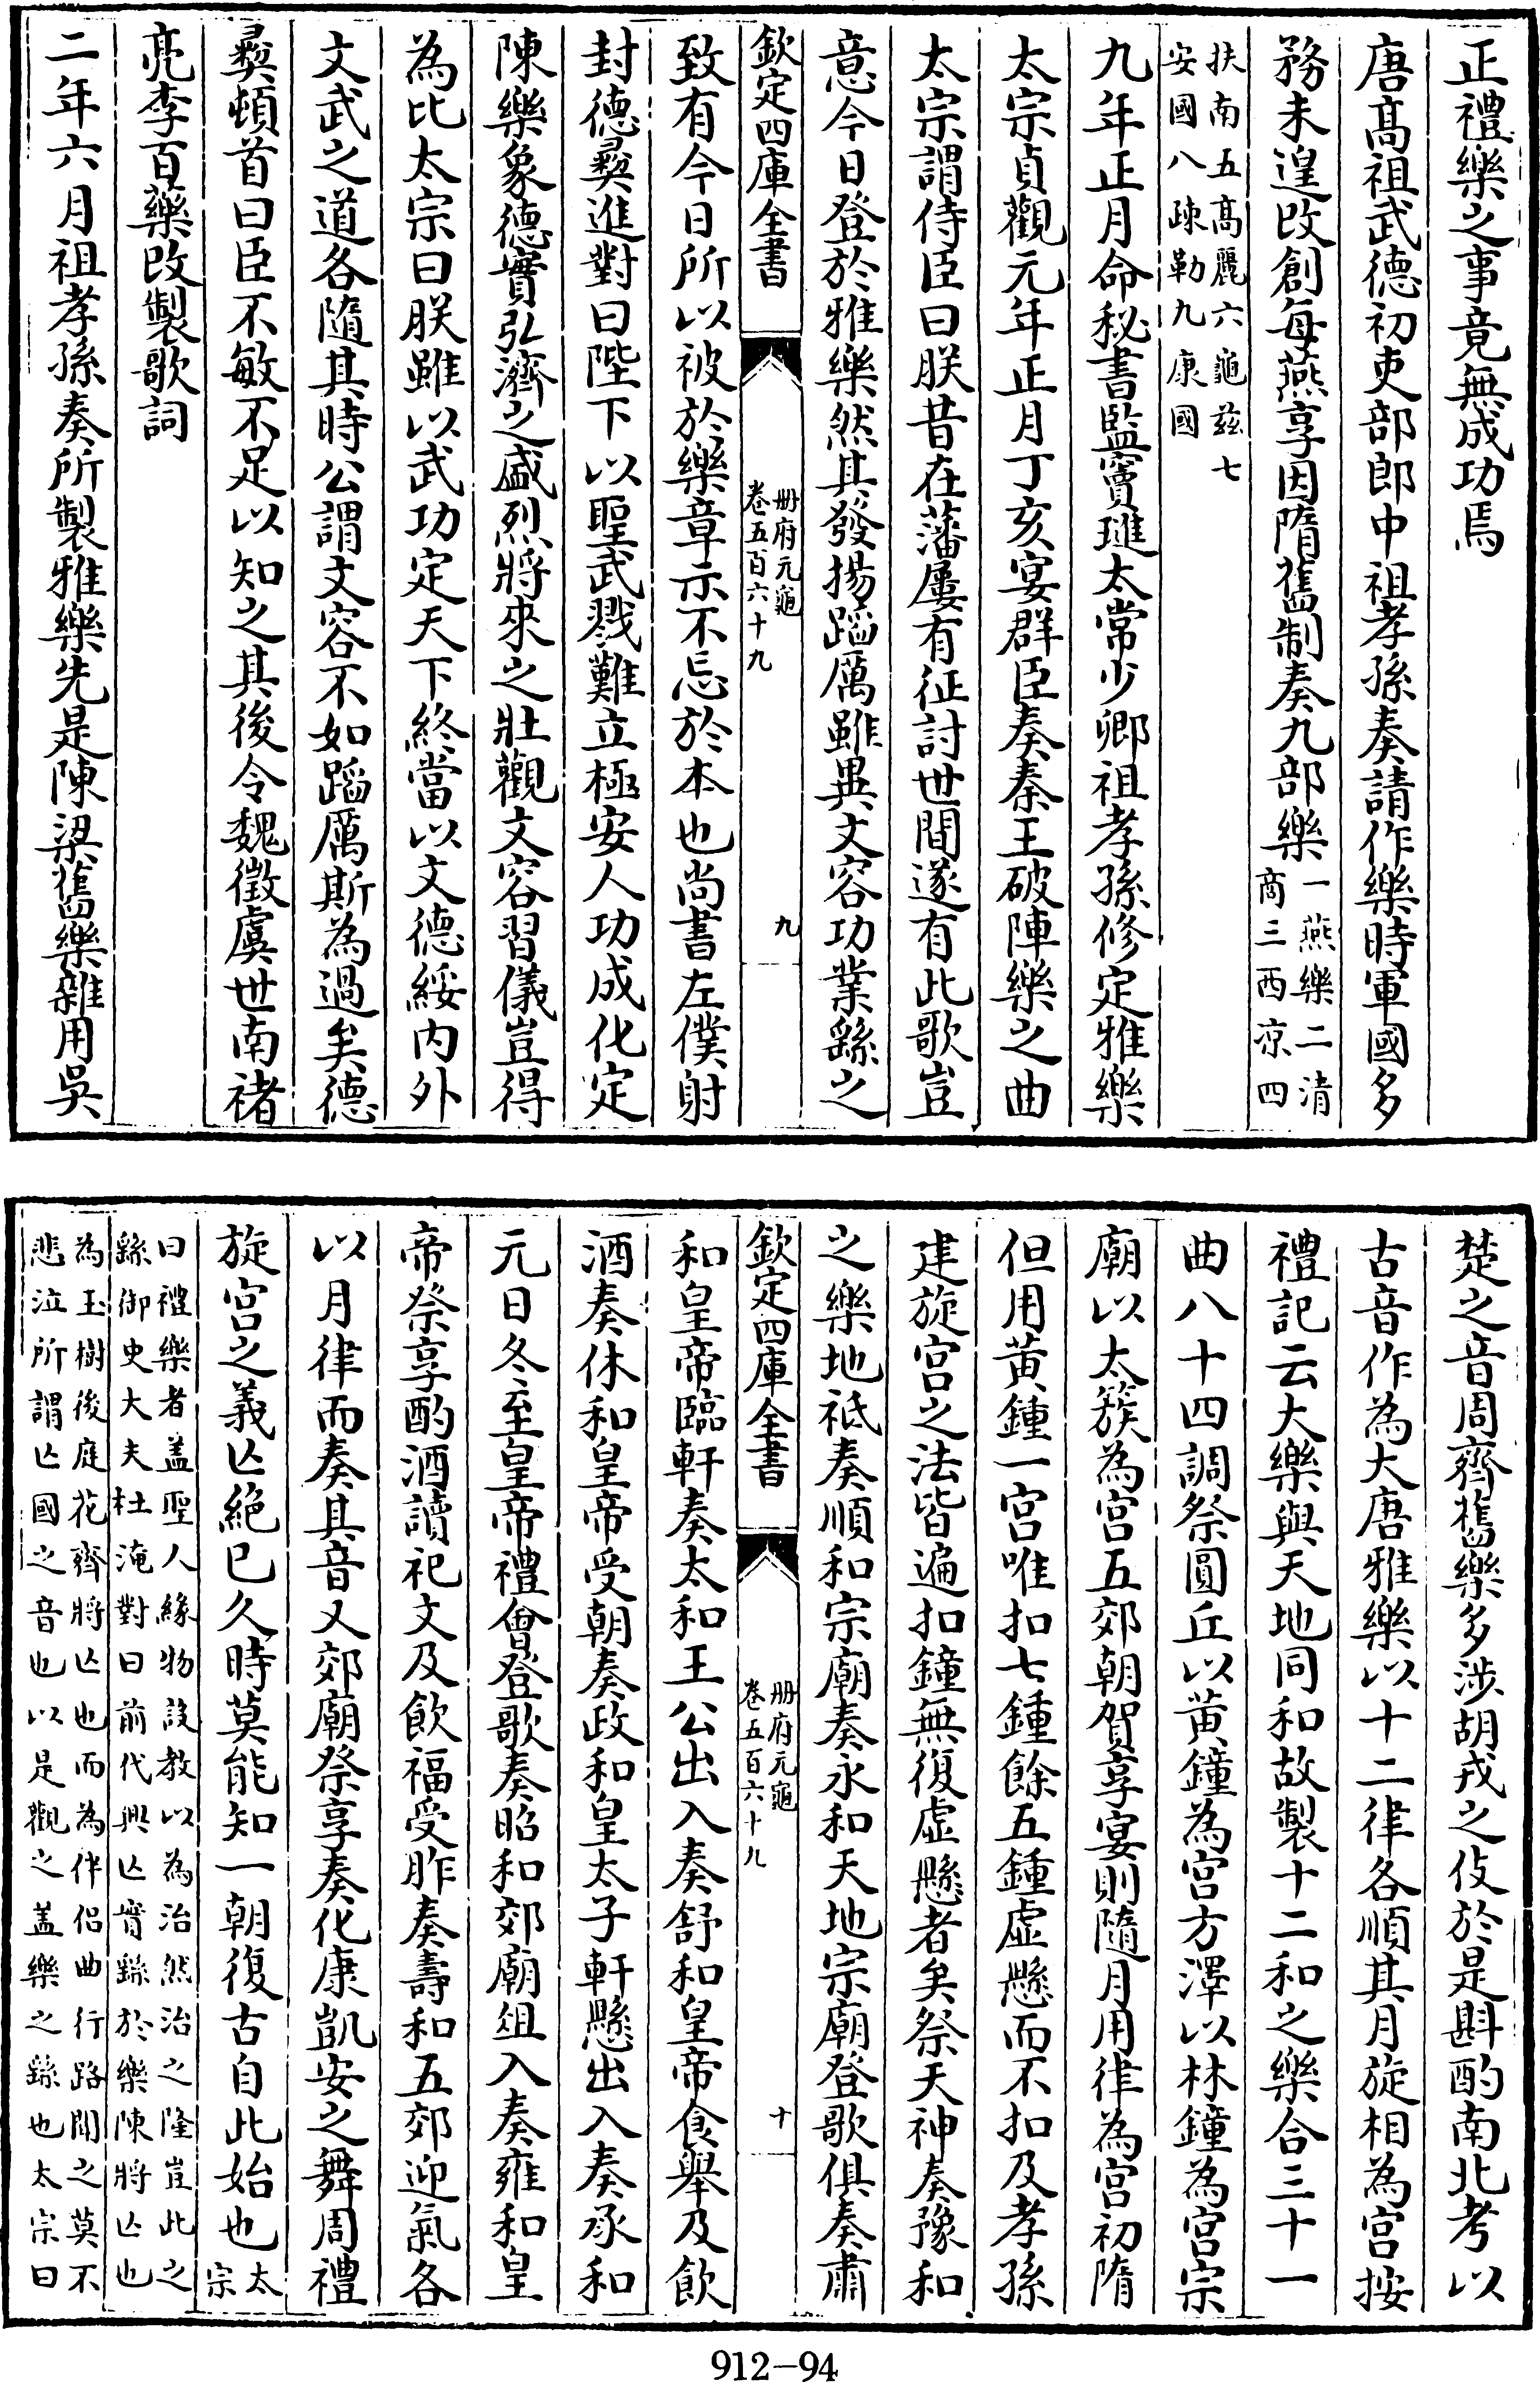 正禮樂之事竟無成功焉
唐高祖武德初吏部郎中祖孝孫奏請作樂時軍國多
務未遑改創每燕享因隋舊制奏九部樂一燕樂二清商三西凉四
扶南五高麗六龜兹七安國八疎勒九康國
九年正月命秘書監竇璡太常少卿祖孝孫修定雅樂
太宗貞觀元年正月丁亥宴群臣奏秦王破陣樂之曲
太宗謂侍臣曰朕昔在藩屢有征討世間遂有此歌豈
意今日登於雅樂然其發揚蹈厲雖異文容功業繇之
欽定四庫全書 冊府元龜 卷五百六十九 九
致有今日所以被於樂章示不忘於本也尚書左僕射
封德彝進對曰陛下以聖武戡難立極安人功成化定
陳樂象德實弘濟之盛烈將來之壯觀文容習儀豈得
為比太宗曰朕雖以武功定天下終當以文德綏内外
文武之道各隨其時公謂文容不如蹈厲斯為過矣德
彝頓首曰臣不敏不足以知之其後令魏徵虞世南褚
亮李百藥改製歌詞
二年六月祖孝孫奏所製雅樂先是陳梁舊樂雜用吳
楚之音周齊舊樂多涉胡戎之伎於是斟酌南北考以
古音作為大唐雅樂以十二律各順其月旋相為宫按
禮記云大樂與天地同和故製十二和之樂合三十一
曲八十四調祭圓丘以黄鐘為宫方澤以林鐘為宫宗
廟以太簇為宫五郊朝賀享宴則隨月用律為宫初隋
但用黄鍾一宫唯扣七鍾餘五鍾虚懸而不扣及孝孫
建旋宫之法皆遍扣鐘無復虚懸者矣祭天神奏豫和
之樂地祇奏順和宗廟奏永和天地宗廟登歌俱奏肅
欽定四庫全書 冊府元龜 卷五百六十九 十
和皇帝臨軒奏太和王公出入奏舒和皇帝食舉及飲
酒奏休和皇帝受朝奏政和皇太子軒懸出入奏承和
元日冬至皇帝禮會登歌奏昭和郊廟俎入奏雍和皇
帝祭享酌酒讀祀文及飲福受胙奏壽和五郊迎氣各
以月律而奏其音又郊廟祭享奏化康凱安之舞周禮
旋宫之義亾絶已久時莫能知一朝復古自此始也太宗
曰禮樂者盖聖人緣物設教以為治然治之隆豈此之繇御史大夫杜淹對曰前代興亾實繇於樂陳將亾也
為玉樹後庭花齊將亾也而為伴侣曲行路聞之莫不悲泣所謂亾國之音也以是觀之盖樂之繇也太宗曰
912-94